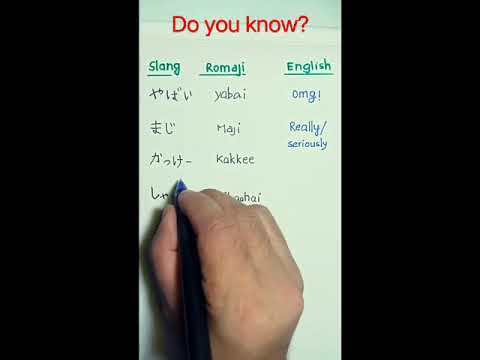 Do you know?
Slang Romaji English
やばい yabai omg!
まじ Maji Really/
seriously
かっけー Kakkee
しゃ